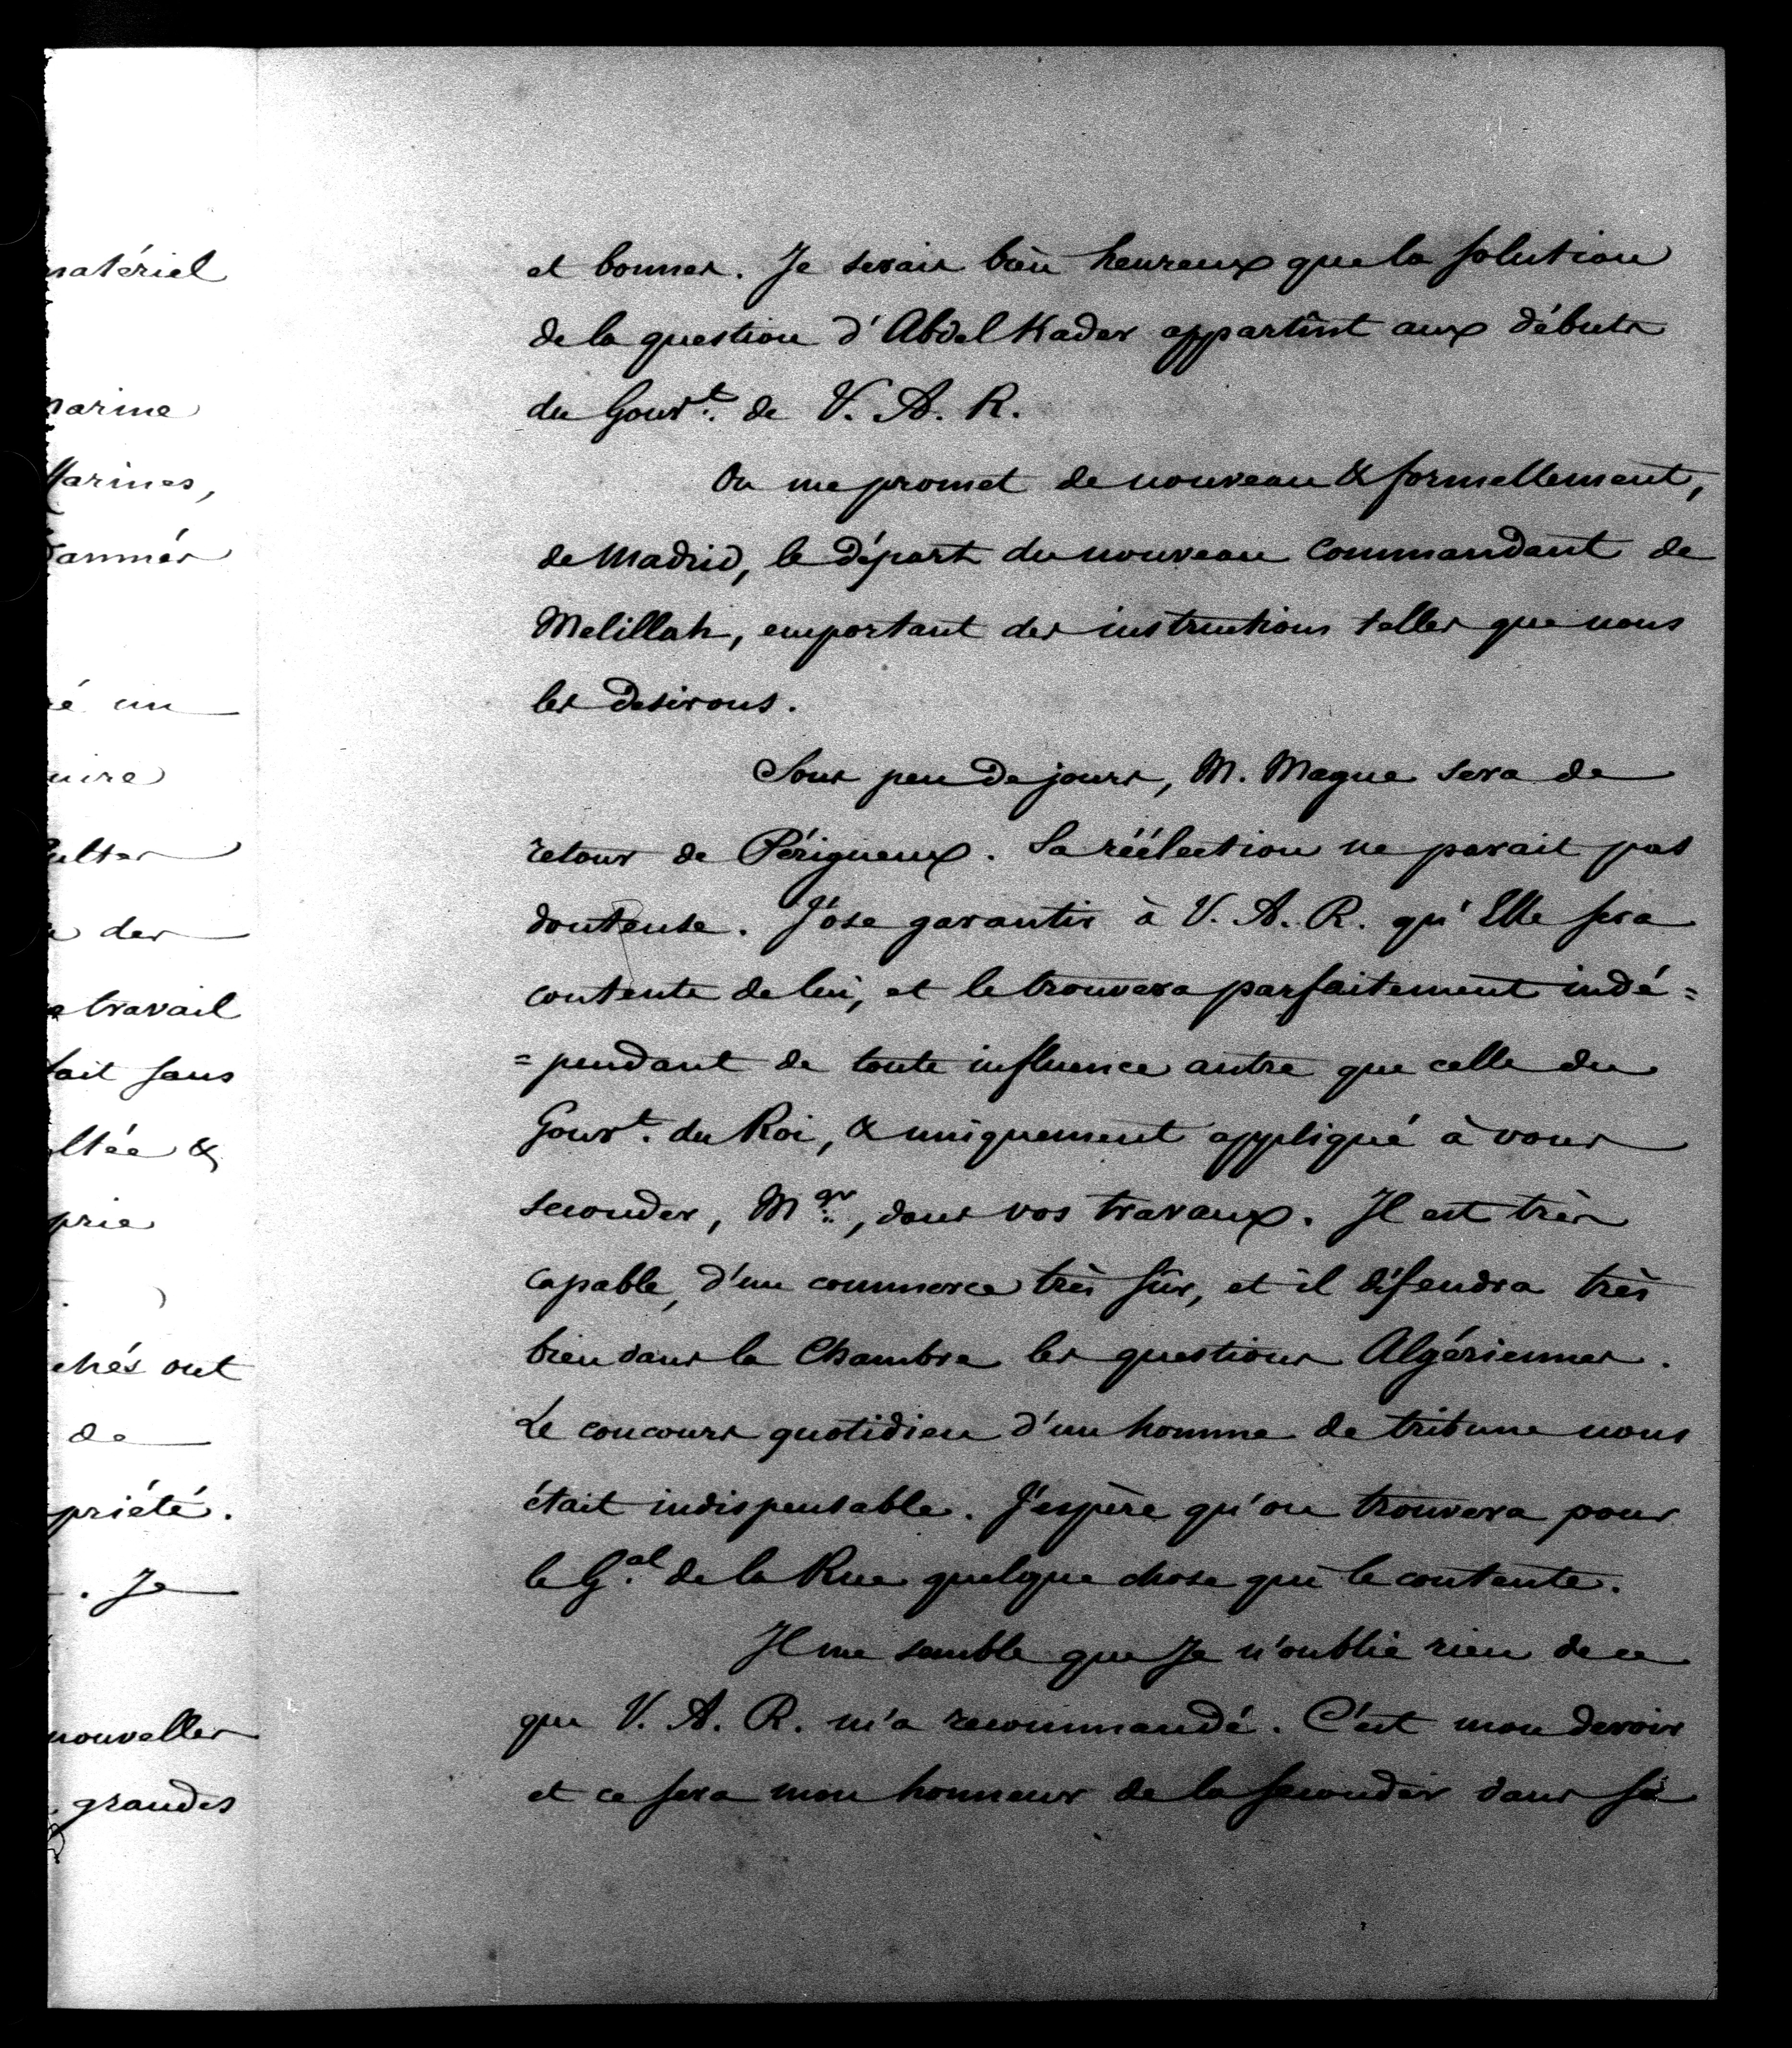 matériel
marine
Marines,
é un
uire
des
travail
ait sans
ltée &
prie
chés ont
de
priété.
. Je
nouvelles
grandes
et bonnes. Je serais bien heureux que la solution
de la question d'Abdel Kader appartînt aux débuts
du Gouvt. de V. A. R.
On me promet de nouveau & formellement,
de Madrid, le départ du nouveau Commandant de
Melillah, emportant des instructions telles que nous
les desirons.
Sous peu de jours, M. Magne sera de
retour de Périgueux. Sa réélection ne parait pas
douteuse. J'ose garantir à V. A. R. qu'Elle sera
contente de lui, et le trouvera parfaitement indé=
=pendant de toute influence autre que celle du
Gouvt. du Roi, & uniquement appliqué à vous
seconder, Mgr., dans vos travaux. Il est très
capable, d'un commerce très sûr, et il défendra très
bien dans la Chambre les questions Algériennes.
Le concours quotidien d'un homme de tribune nous
était indispensable. J'espère qu'on trouvera pour
le Gal. de la Rue quelque chose qui le contente.
Il me semble que Je n'oublie rien de ce
que V. A. R. m'a recommandé. C'est mon devoir
et ce sera mon honneur de la seconder dans sa